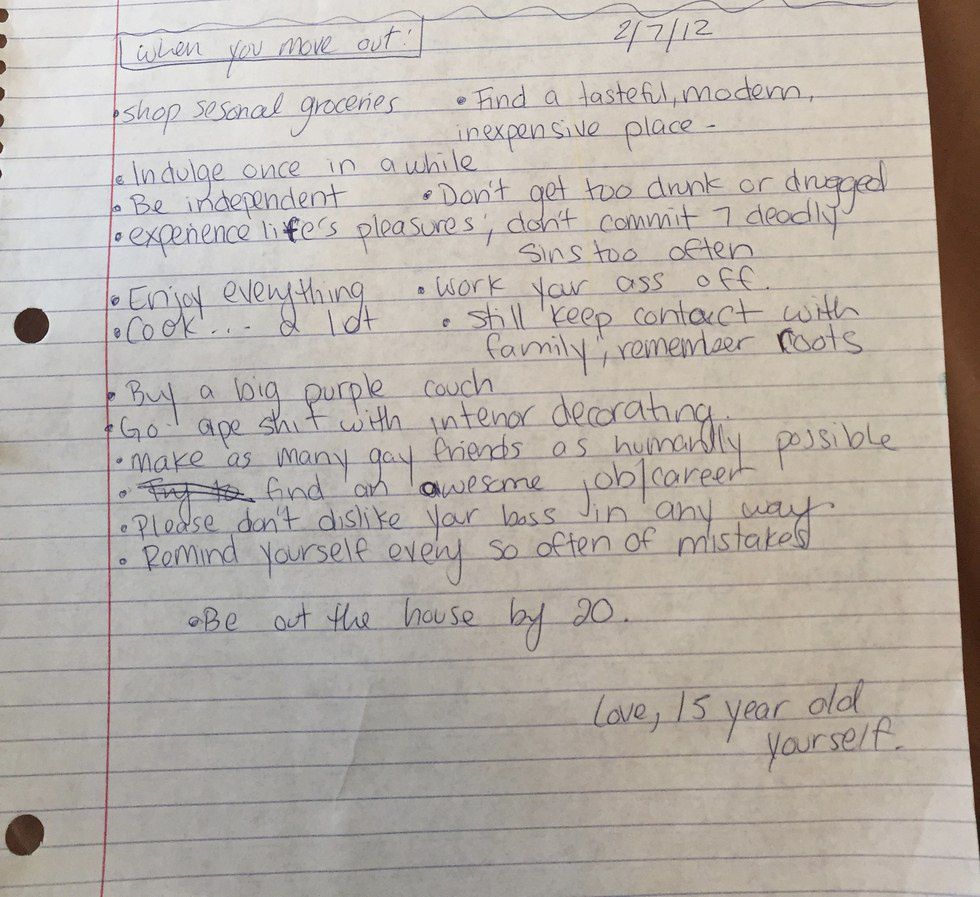 When you move out: 2/7/12
• shop sesonal groceries • Find a tasteful, modern,
inexpensive place -
• Indulge once in a while
• Be independent • Don't get too drunk or drugged
• experience life's pleasures; don't commit 7 deadly
sins too often
• Enjoy everything • work your ass off.
• Cook... a lot • still keep contact with
family, remember roots
• Buy a big purple couch
• Go ape shit with interior decorating.
• make as many gay friends as humanly possible
• Try to find an awesome job/career
• Please don't dislike your boss in any way.
• Remind yourself every so often of mistakes
• Be out the house by 20.
Love, 15 year old
yourself.